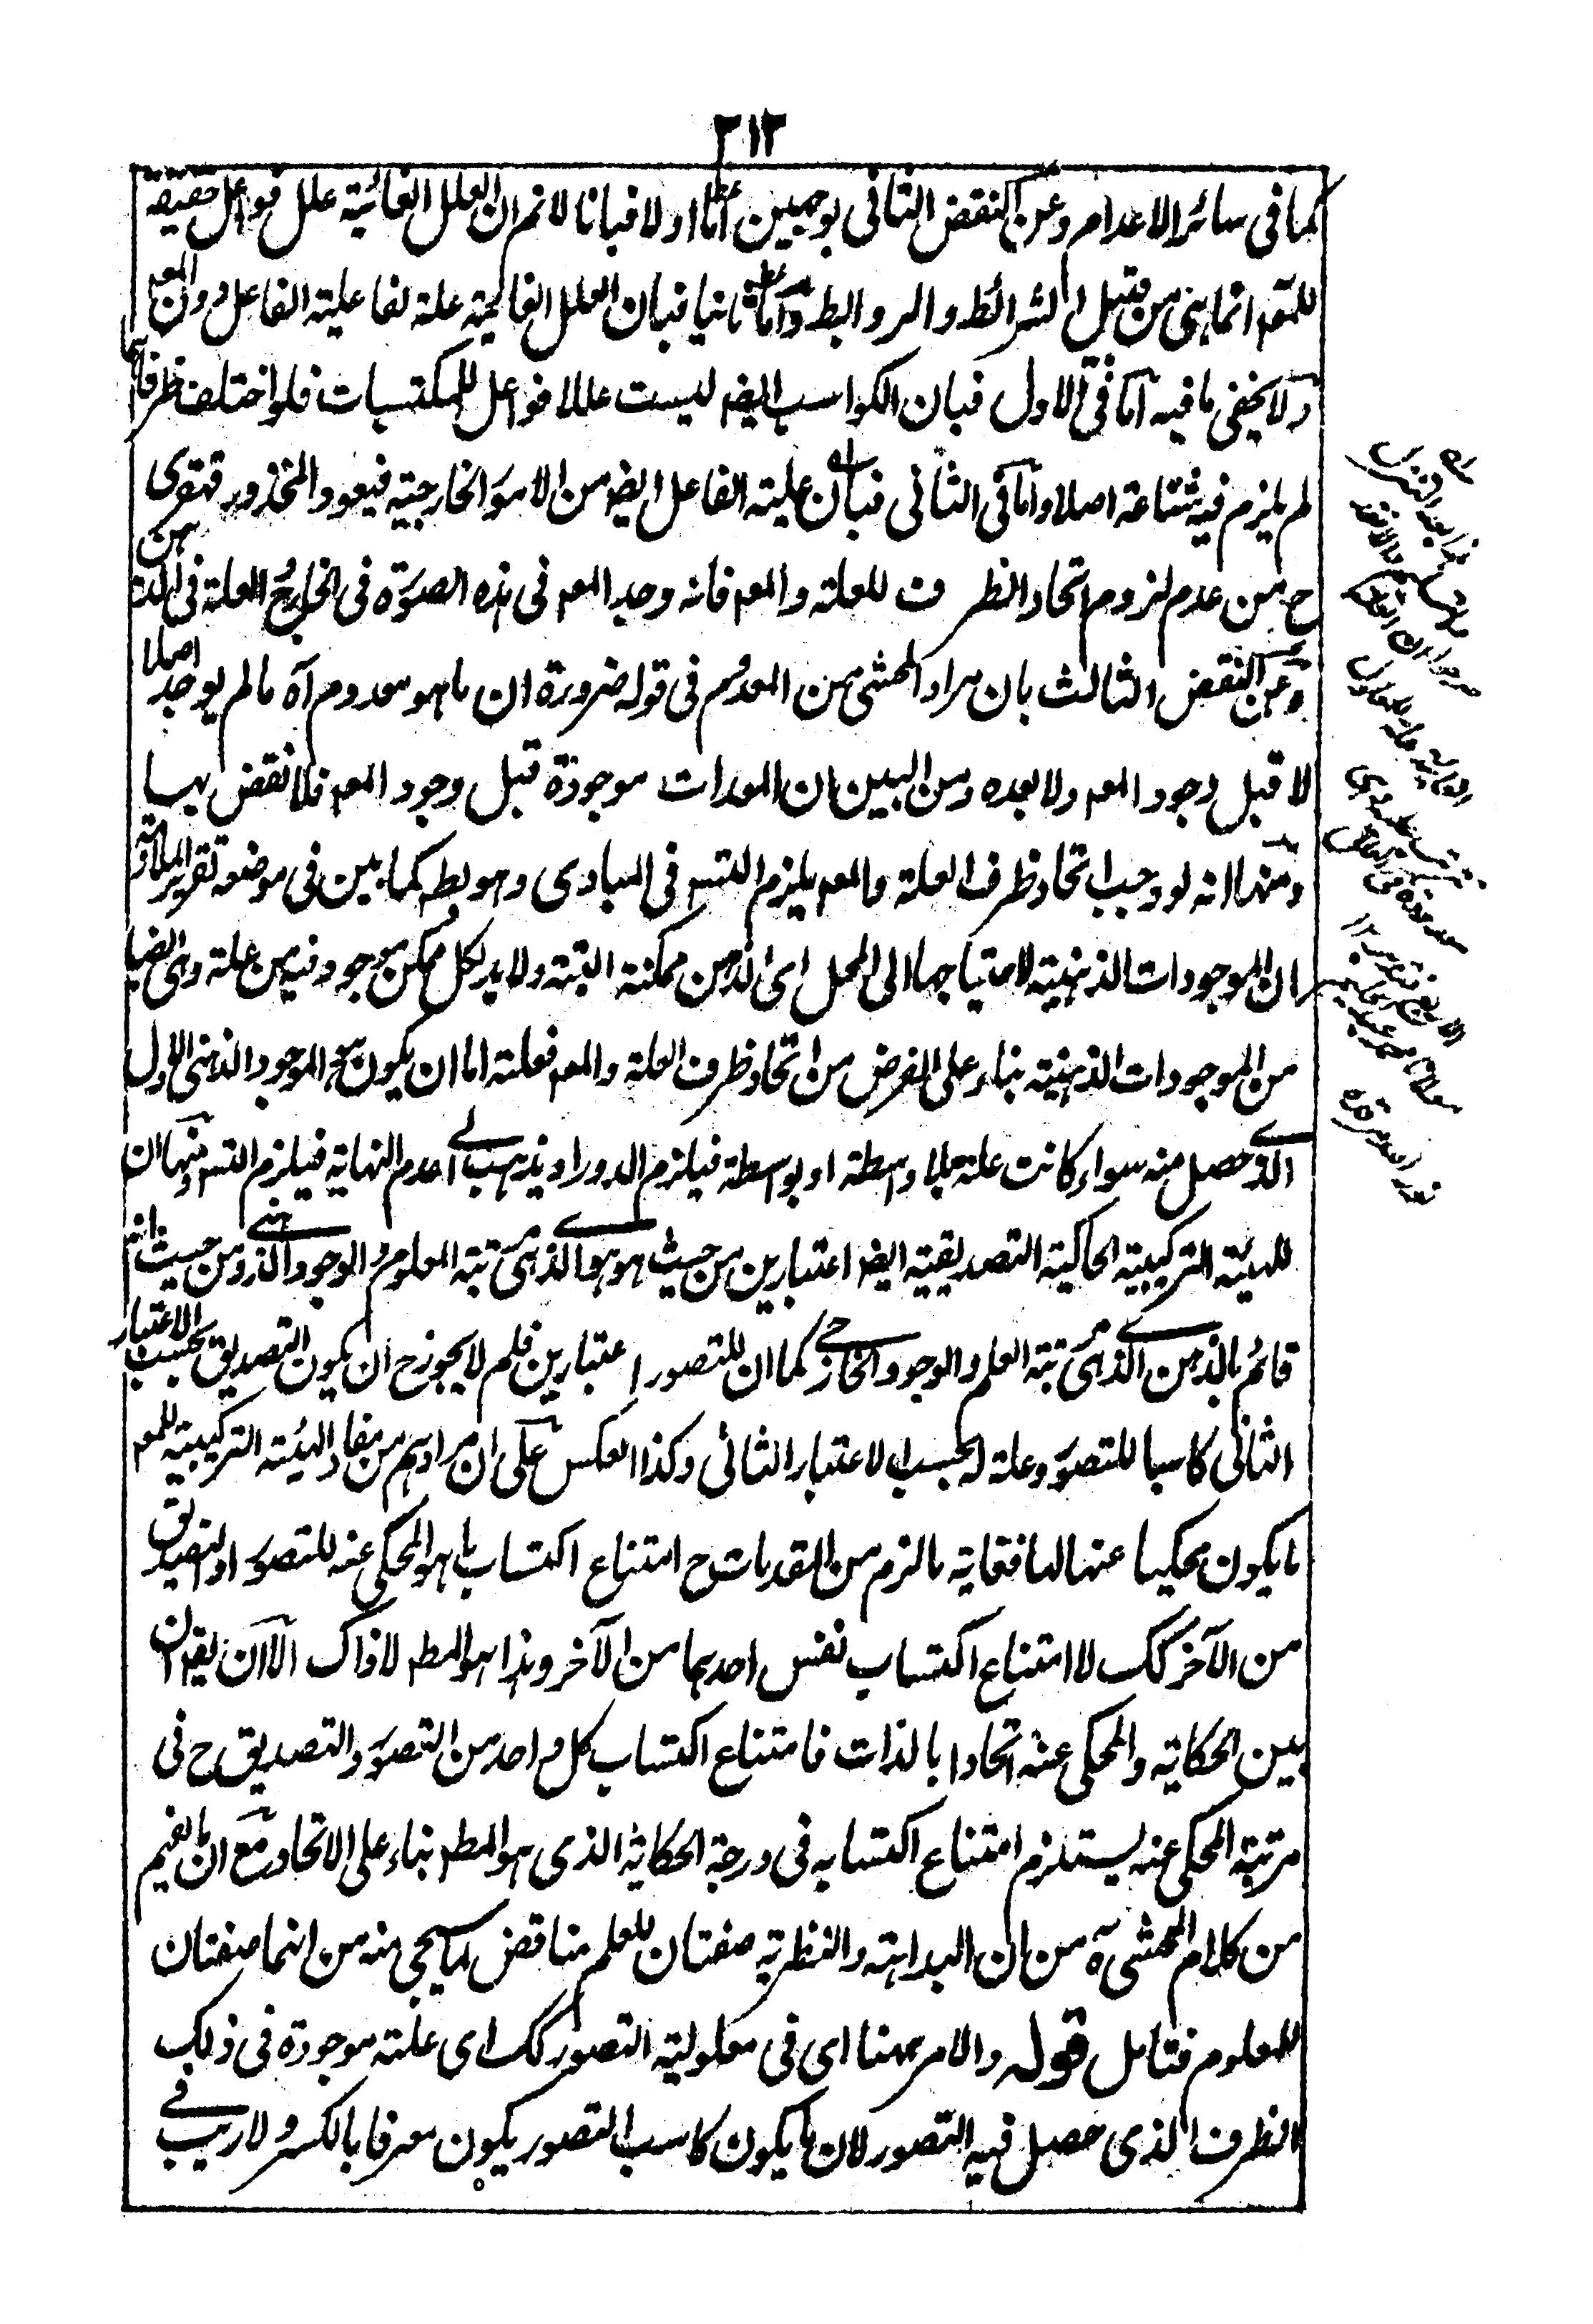 ٣١٢
كما فى سائر الاعدام وعن النقض الثانى بوجهين اما اولا فبانا لا نم ان العلل الغائية علل فواعل حقيقة
للمعه انما هى من قبيل الشرائط والروابط واما ثانيا فبان العلل الغائية علة لفاعلية الفاعل دون المعه
ولا يخفى ما فيه اما فى الاول فبان الكواسب ايضه ليست عللا فواعل للمكتسبات فلو اختلف ظرفاهما
لم يلزم فيه شناعة اصلا واما فى الثانى فبان علية الفاعل ايضه من الامور الخارجية فيعود المحذور قهقرى
ح من عدم لزوم اتحاد الظرف للعلة والمعه فانه وجد المعه فى هذه الصورة فى الخارج والعلة فى الذهن
وعن النقض الثالث بان مراد المحشى من المعدوم فى قوله ضرورة ان ما هو معدوم آه ما لم يوجد اصلا
لا قبل وجود المعه ولا بعده ومن البين ان المعدات موجودة قبل وجود المعه فلا نقض بها
ومنها انه لو وجب اتحاد ظرف العلة والمعه يلزم التس فى المبادى وهو بط كما بين فى موضعه تقرير الملازمة
ان الموجودات الذهنية لاحتياجها الى المحل اى الذهن ممكنة البتة ولا بد لكل ممكن موجود فيه من علة وهى ايضا
من الموجودات الذهنية بناء على الفرض من اتحاد ظرف العلة والمعه فعلته اما ان يكون هو الموجود الذهنى الاول
الذى حصل منه سواء كانت علة بلا واسطة او بواسطة فيلزم الدور او يذهب الى عدم النهاية فيلزم التس ومنها ان
للهيئة التركيبية الحاكية التصديقية ايضه اعتبارين من حيث هو هو الذى مرتبة المعلوم والوجود الذهنى ومن حيث انه
قائم بالذهن الذى مرتبة العلم والوجود الخارجى كما ان للتصور اعتبارين فلم لا يجوز ح ان يكون التصديق بحسب الاعتبار
الثانى كاسبا للتصور وعلة له بحسب الاعتبار الثانى وكذا العكس على ان مرادهم من مفاد الهيئة التركيبية للمعه
ما يكون محكيا عنها لها فغاية ما لزم من المقدمات ح امتناع اكتساب ما هو المحكى عنه للتصور او التصديق
من الآخر كك لا امتناع اكتساب نفس احدهما من الآخر وهذا هو المطه لا ذاك الا ان يقه ان
بين الحكاية والمحكى عنه اتحادا بالذات فامتناع اكتساب كل واحد من التصور والتصديق ح فى
مرتبة المحكى عنه يستلزم امتناع اكتسابه فى درجة الحكاية الذى هو المطه بناء على الاتحاد مع ان ما فهم
من كلام المحشى آه من ان البداهة والنظرية صفتان للعلم مناقض لما سيجى منه من انهما صفتان
للمعلوم فتامل قوله والامر ههنا اى فى معلولية التصور كك اى علته موجودة فى ذلك
الظرف الذى حصل فيه التصور لان ما يكون كاسب التصور يكون معرفا بالكسر ولا ريب فى